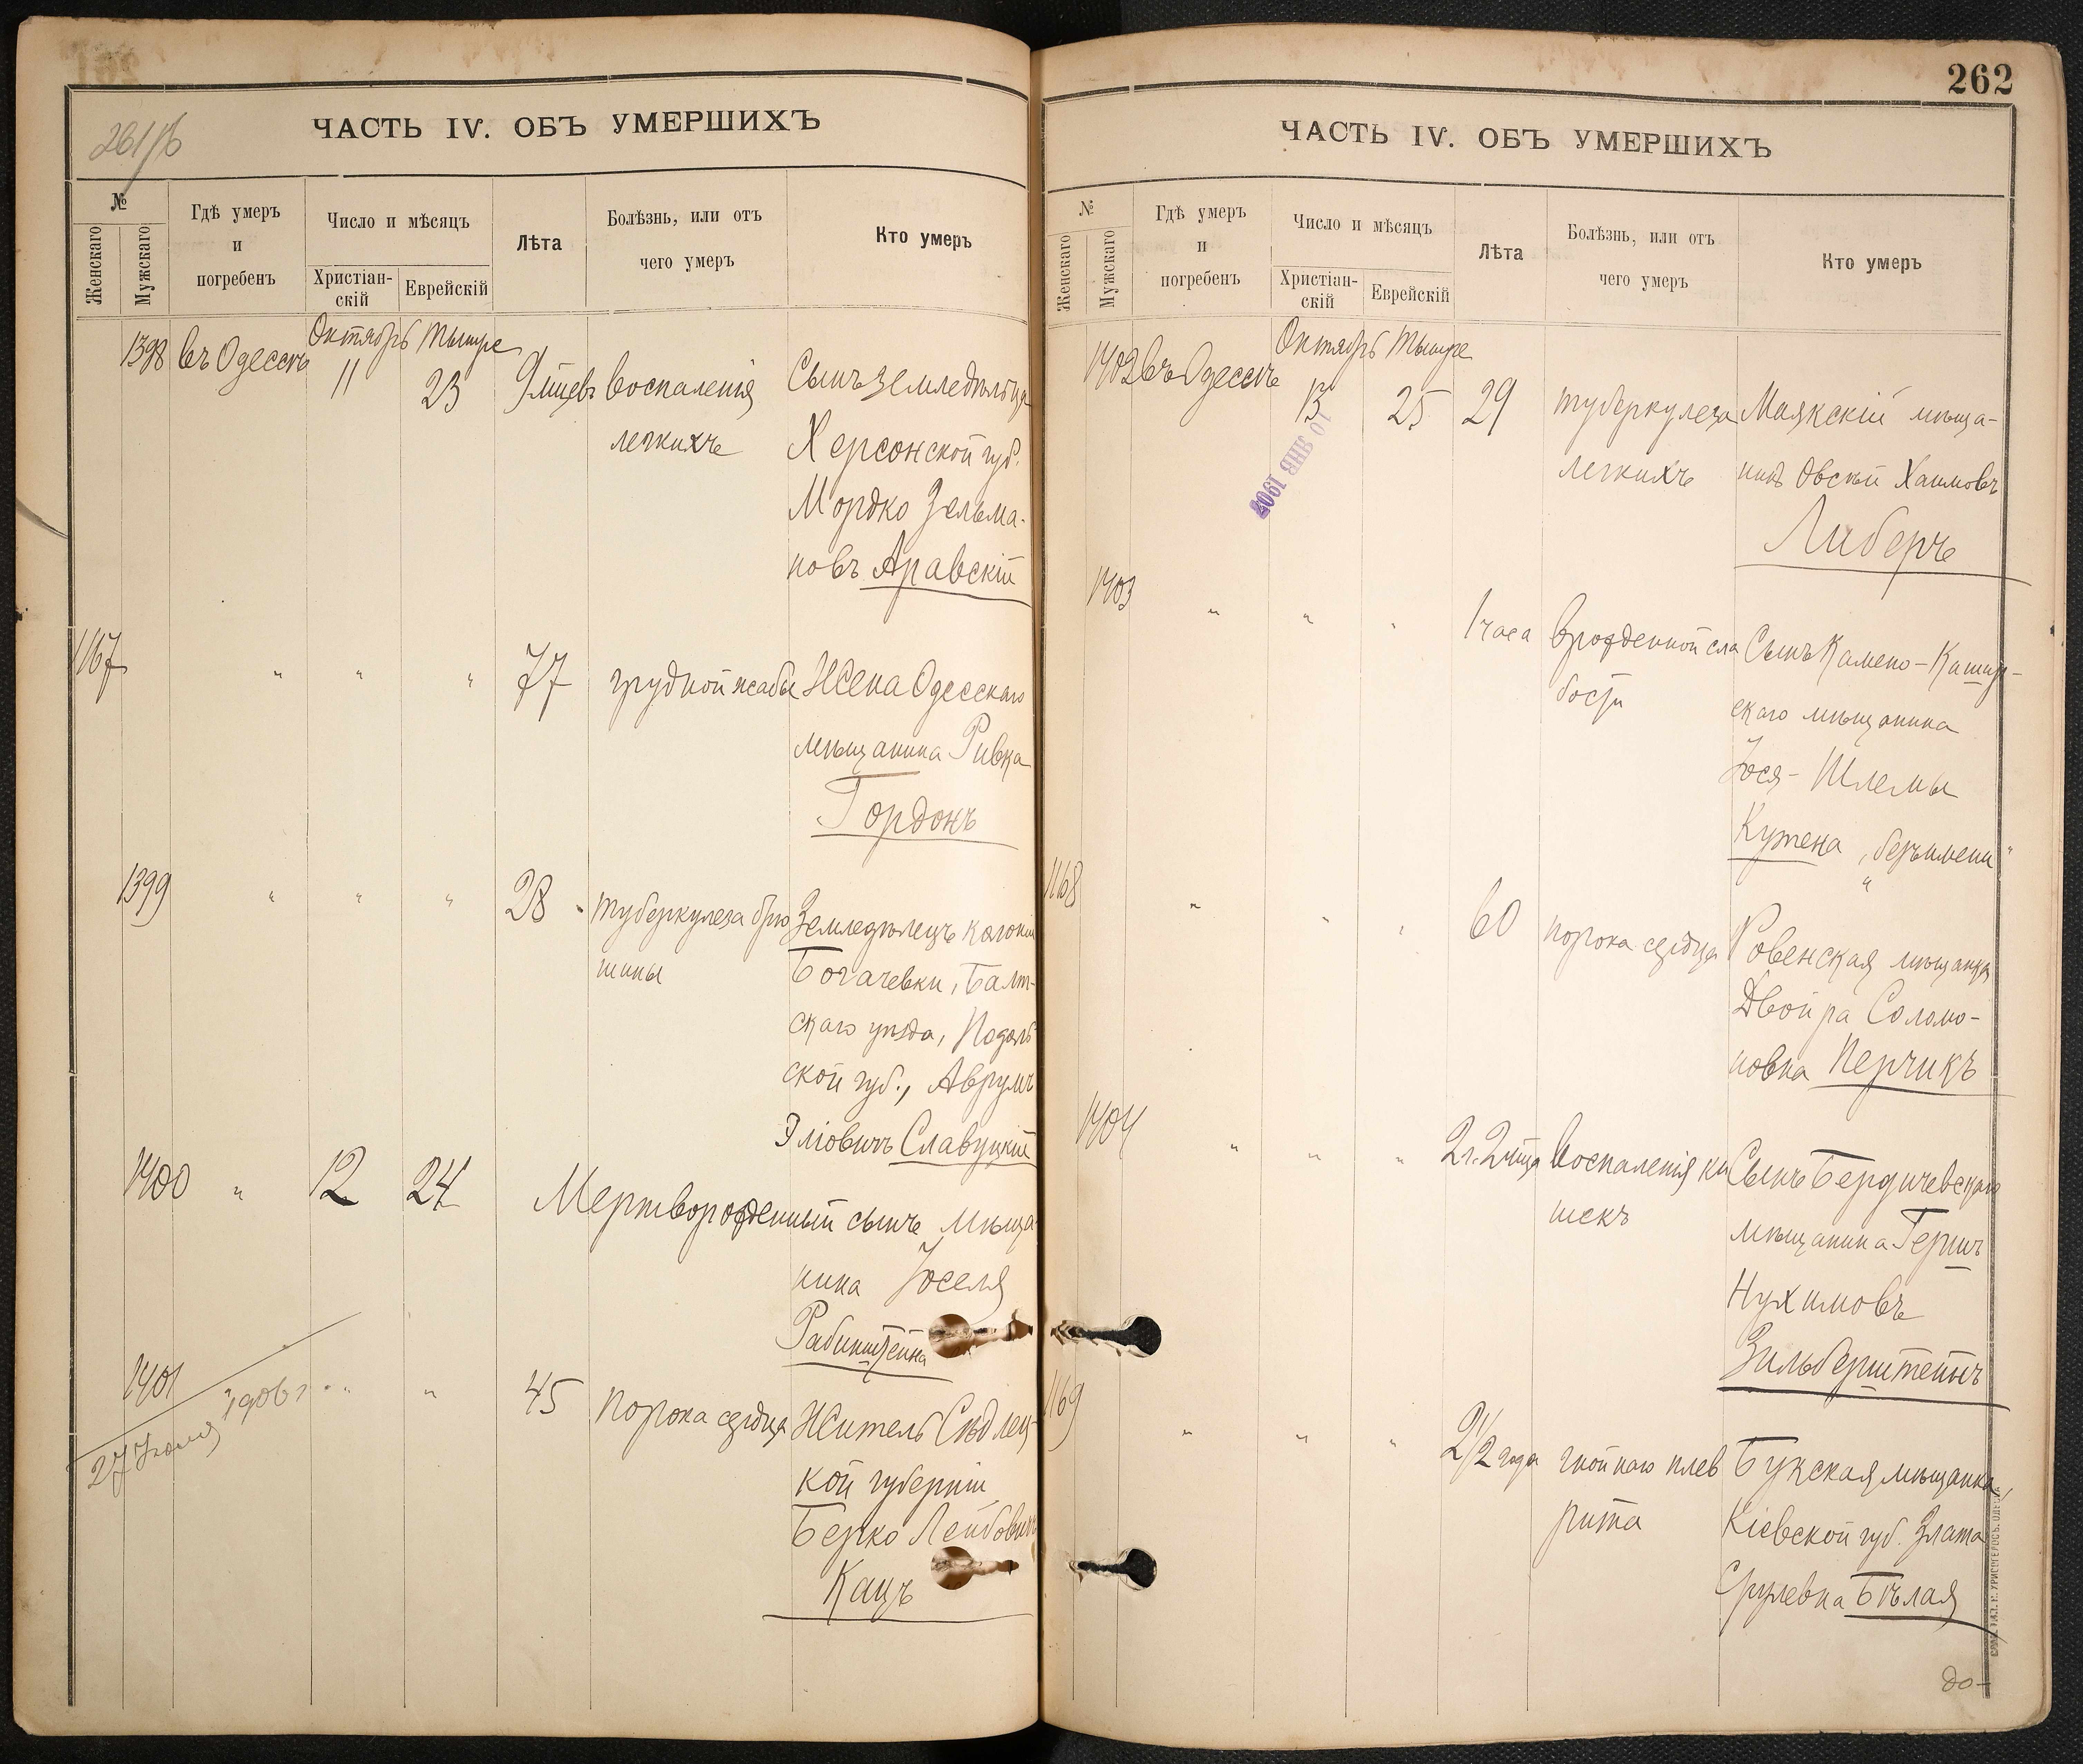 261/б
ЧАСТЬ IV. ОБЪ УМЕРШИХЪ
№
Женскаго
Мужскаго
Гдѣ умеръ
и
погребенъ
Число и мѣсяцъ
Христіан-
скій
Еврейскій
Лѣта
Болѣзнь, или отъ
чего умеръ
Кто умеръ
Октябрь Тышре
1398 въ Одессѣ 11 23 9 мѣцевъ Воспаленія Сынъ земледѣльца
легкихъ Херсонской губ.
Мордко Зельма-
новъ Аравскій
1167 " " " 77 грудной жабы Жена Одесскаго
мѣщанина Ривка
Гордонъ
1399 " " " 28 туберкулеза брю Земледѣлецъ колоніи
шины Богачевки, Балт-
скаго уѣзда, Подоль
ской губ., Аврумъ
Эліовичъ Славуцкій
1400 " 12 24 Мертворожденный сынъ мѣща
нина Іоселя
Рабинштейна
1401 " " " 45 Порока сердца Житель Сѣдлец-
кой губерніи
Берко Лейбовичъ
Кацъ
27 Іюля 1906 г.
262
ЧАСТЬ IV. ОБЪ УМЕРШИХЪ
№
Женскаго
Мужскаго
Гдѣ умеръ
и
погребенъ
Число и мѣсяцъ
Христіан-
скій
Еврейскій
Лѣта
Болѣзнь, или отъ
чего умеръ
Кто умеръ
Октябрь Тышре
1402 въ Одессѣ 13 25 29 туберкулеза Маякскій мѣща-
легкихъ нинъ Овсѣй Хаимовъ
Либеръ
10 ЯНВ 1907
1403 " " " 1 часа врожденной сла Сынъ Камено-Кашир-
бости скаго мѣщанина
Іося-Шлемы
Кутена „безъимени"
1168 " " " 60 порока сердца Ровенская мѣщанка
Двойра Соломо-
новна Перчикъ
1404 " " " 2 г. 2 мѣца Воспаленія ки Сынъ Бердичевскаго
шекъ мѣщанина Гершъ
Нухимовъ
Зильберштейнъ
1169 " " " 2 1/2 года гнойнаго плев Букская мѣщанка,
рита Кіевской губ. Злата
Срулевна Бѣлая
до-